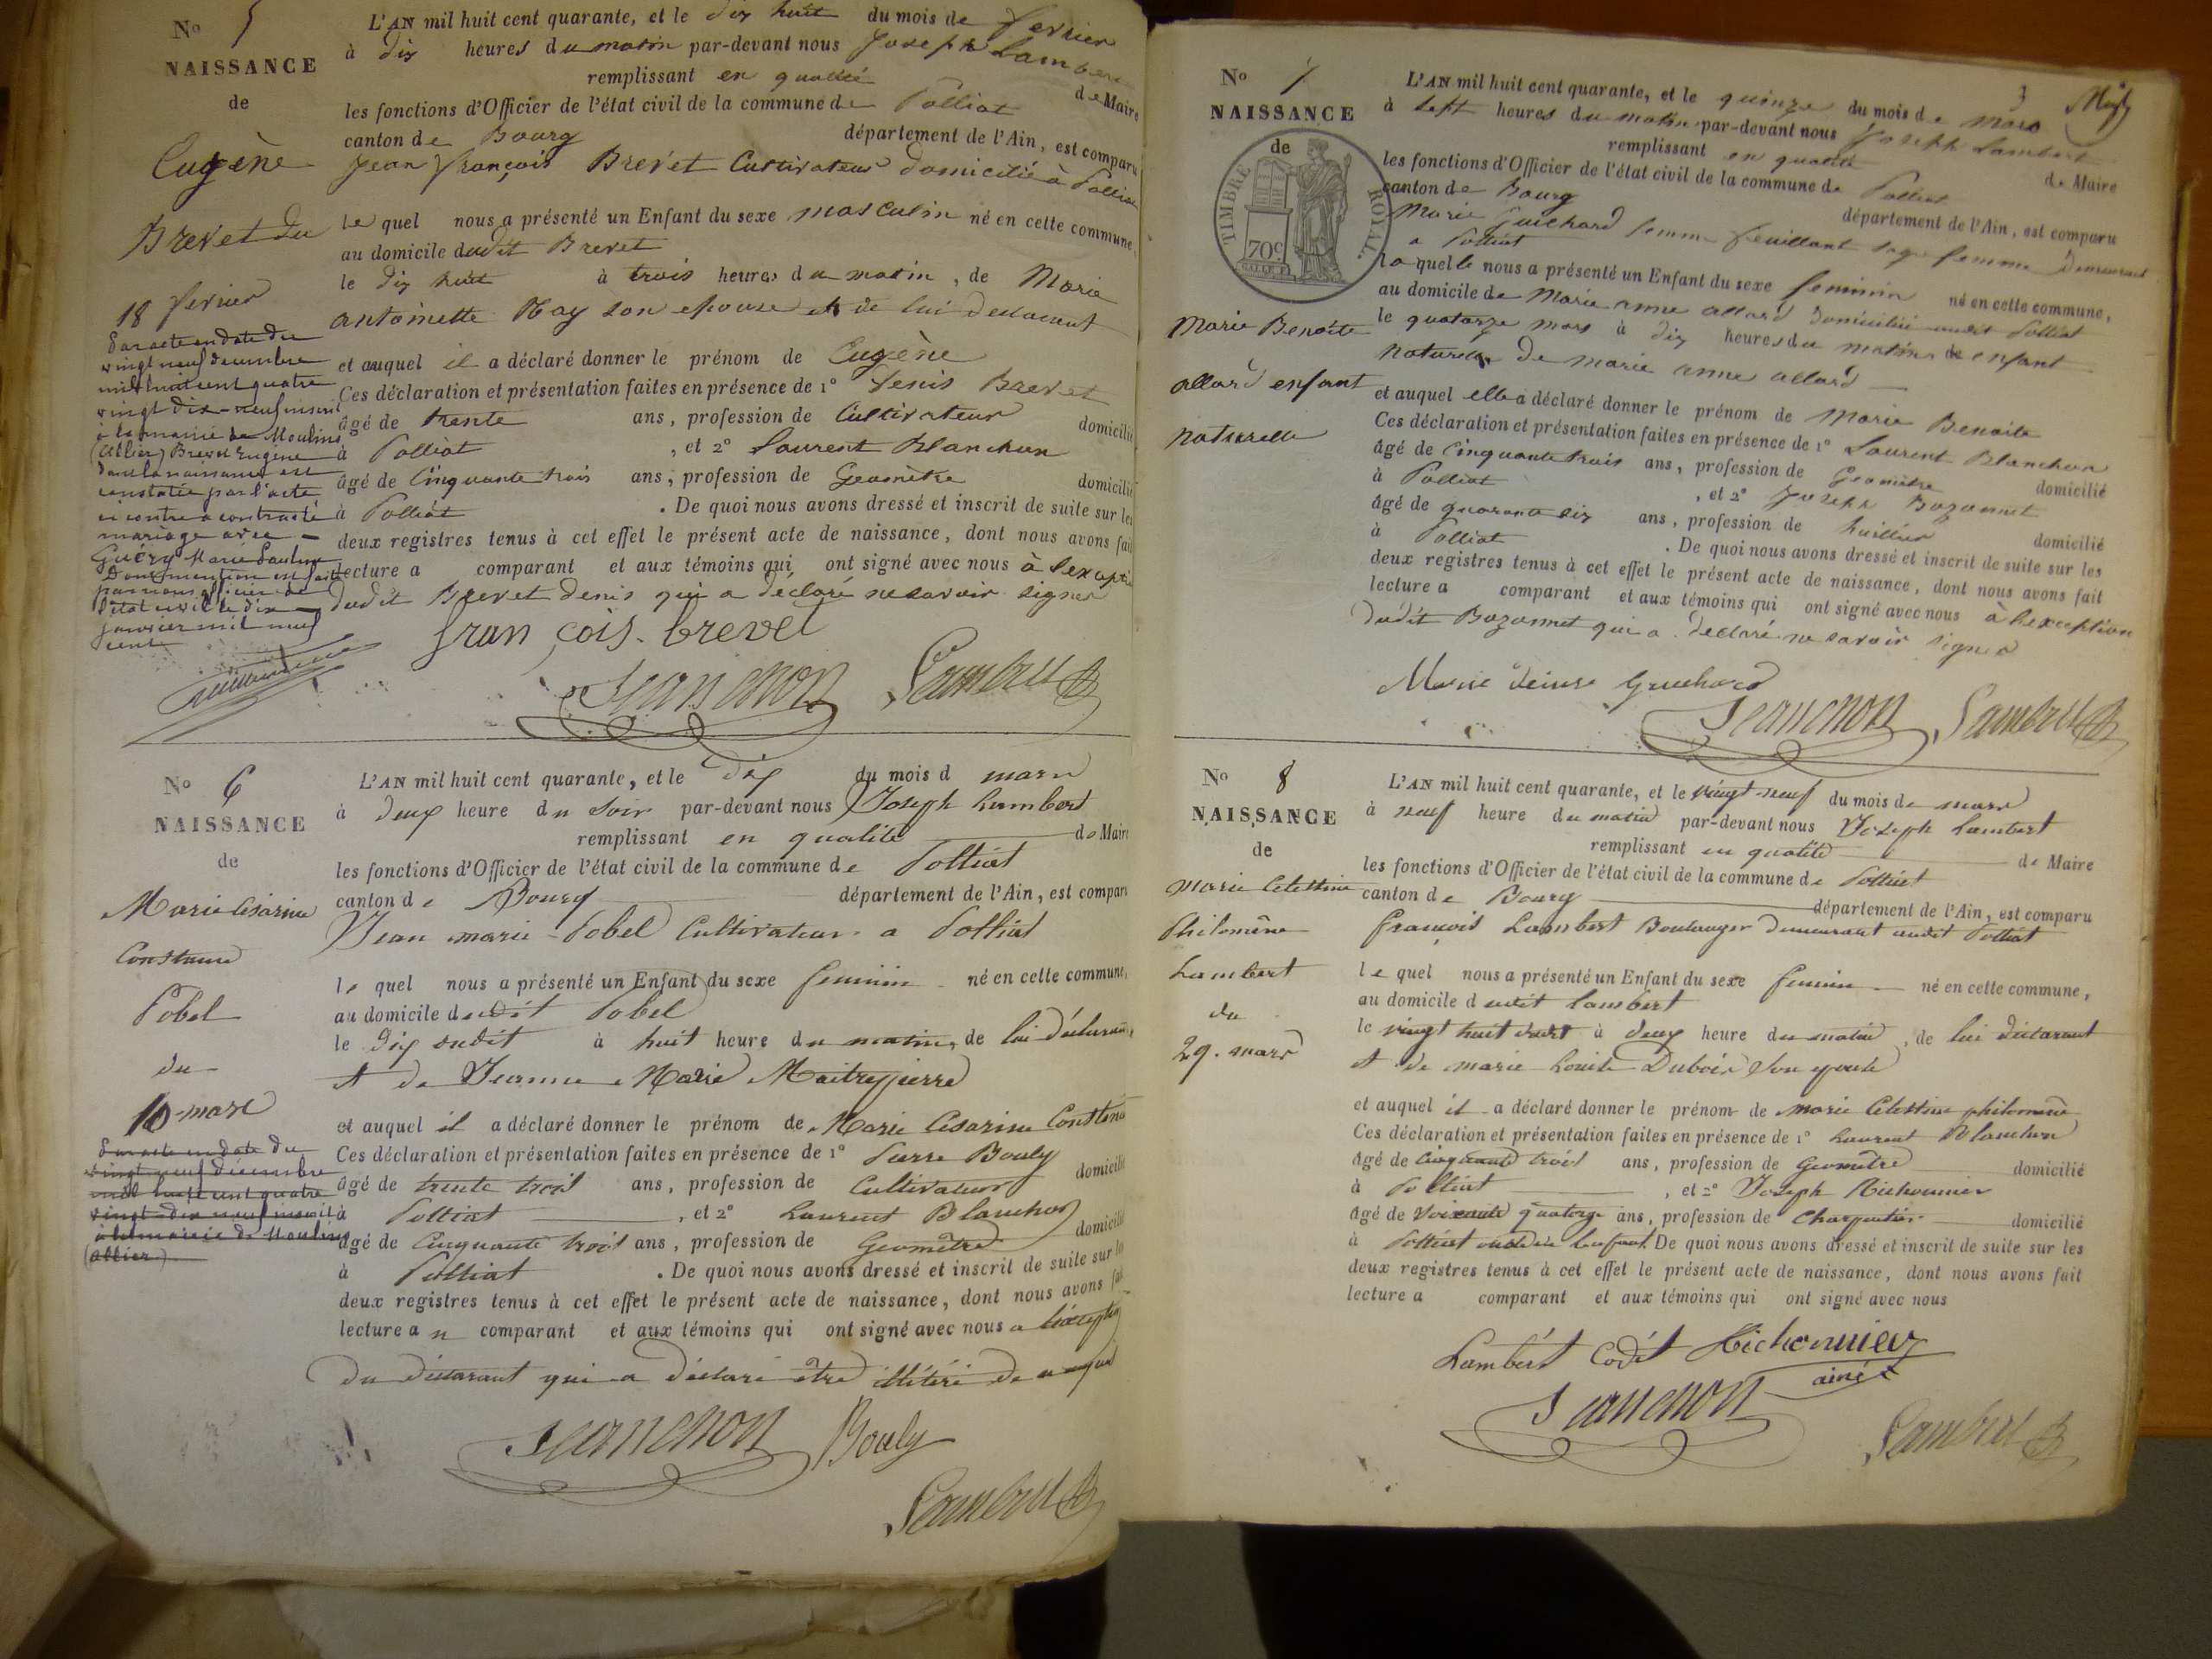 No 5
NAISSANCE
de
Eugène
Brevet du
18 fevrier
Par acte en date du
vingt neuf decembre
mil huit cent quatre
vingt dix-neuf inscrit
à la mairie de Moulins
(Allier) Brevet Eugène
dont la naissance est
constatée par l'acte
ci contre a contracté
mariage avec
Guéry Marie Pauline
Dont mention est faite
par nous officier de
l'état civil le dix
janvier mil neuf
cent
L'AN mil huit cent quarante, et le dix huit du mois de fevrier
à dix heures du matin par-devant nous Joseph Lambert
remplissant en qualité de Maire
les fonctions d'Officier de l'état civil de la commune de Polliat
canton de Bourg département de l'Ain, est comparu
Jean françois Brevet Cultivateur domicilié à Polliat
le quel nous a présenté un Enfant du sexe masculin né en cette commune,
au domicile dudit Brevet
le dix huit à trois heures du matin, de Marie
antoinette Nay son epouse et de lui declarant
et auquel il a déclaré donner le prénom de Eugène
Ces déclaration et présentation faites en présence de 1° Denis Brevet
âgé de trente ans, profession de Cultivateur domicilié
à Polliat, et 2° Laurent Blanchon
âgé de Cinquante trois ans, profession de Geomètre domicilié
à Polliat. De quoi nous avons dressé et inscrit de suite sur les
deux registres tenus à cet effet le présent acte de naissance, dont nous avons fait
lecture a comparant et aux témoins qui ont signé avec nous à l'exception
dudit Brevet denis qui a déclaré ne savoir signer
françois brevet
Blanchon Lambert
No 6
NAISSANCE
de
Marie Césarine
Constance
Pobel
du
10 mars
Par acte en date du
vingt neuf decembre
mil huit cent quatre
vingt dix neuf inscrit
à la mairie de Moulins
(Allier)
L'AN mil huit cent quarante, et le dix du mois d mars
à deux heure du soir par-devant nous Joseph Lambert
remplissant en qualité de Maire
les fonctions d'Officier de l'état civil de la commune de Polliat
canton de Bourg département de l'Ain, est comparu
Jean marie Pobel Cultivateur a Polliat
le quel nous a présenté un Enfant du sexe feminin né en cette commune,
au domicile dudit Pobel
le dix dudit à huit heure du matin, de lui déclarant
et de Jeanne Marie Maitrepierre
et auquel il a déclaré donner le prénom de Marie Césarine Constance
Ces déclaration et présentation faites en présence de 1° Pierre Bouly
âgé de trente trois ans, profession de Cultivateur domicilié
à Polliat, et 2° Laurent Blanchon
âgé de Cinquante trois ans, profession de Geomètre domicilié
à Polliat. De quoi nous avons dressé et inscrit de suite sur les
deux registres tenus à cet effet le présent acte de naissance, dont nous avons fait
lecture a u comparant et aux témoins qui ont signé avec nous a l'exception
du déclarant qui a déclaré être illitéré de
Blanchon Bouly
Lambert
3
No 7
NAISSANCE
de
TIMBRE ROYAL.
70c
Marie Benoite
allard enfant
naturelle
L'AN mil huit cent quarante, et le quinze du mois de mars
à sept heures du matin par-devant nous Joseph Lambert
remplissant en qualité de Maire
les fonctions d'Officier de l'état civil de la commune de Polliat
canton de Bourg département de l'Ain, est comparu
Marie Guichard femme feuillant sage femme Demeurant
a Polliat
la quelle nous a présenté un Enfant du sexe feminin né en cette commune,
au domicile de Marie anne allard domiciliée audit Polliat
le quatorze mars à dix heures du matin de enfant
naturelle de marie anne allard
et auquel elle a déclaré donner le prénom de Marie Benoite
Ces déclaration et présentation faites en présence de 1° Laurent Blanchon
âgé de Cinquante trois ans, profession de Geomètre domicilié
à Polliat, et 2° Joseph Bozonnet
âgé de quarante six ans, profession de huillier domicilié
à Polliat. De quoi nous avons dressé et inscrit de suite sur les
deux registres tenus à cet effet le présent acte de naissance, dont nous avons fait
lecture a comparant et aux témoins qui ont signé avec nous à l'exception
dudit Bozonnet qui a declaré ne savoir signer
Marie Guichard
Blanchon Lambert
No 8
NAISSANCE
de
marie Celestine
Philomène
Lambert
du
29. mars
L'AN mil huit cent quarante, et le vingt-neuf du mois de mars
à neuf heure du matin par-devant nous Joseph Lambert
remplissant en qualité de Maire
les fonctions d'Officier de l'état civil de la commune de Polliat
canton de Bourg département de l'Ain, est comparu
françois Lambert Boulanger demeurant audit Polliat
le quel nous a présenté un Enfant du sexe feminin né en cette commune,
au domicile dudit Lambert
le vingt huit dudit à deux heure du matin, de lui déclarant
et de marie Louise Dubois son epouse
et auquel il a déclaré donner le prénom de marie Celestine philomène
Ces déclaration et présentation faites en présence de 1° Laurent Blanchon
âgé de Cinquante trois ans, profession de Geomètre domicilié
à Polliat, et 2° Joseph Richonnier
âgé de soixante quatorze ans, profession de Charpentier domicilié
à Polliat. De quoi nous avons dressé et inscrit de suite sur les
deux registres tenus à cet effet le présent acte de naissance, dont nous avons fait
lecture a comparant et aux témoins qui ont signé avec nous
Lambert Richonnier
ainé
Blanchon
Lambert